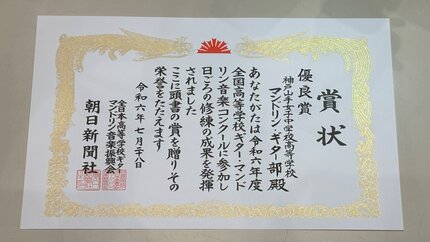 賞状
優良賞
神戸山手女子中学校高等学校
マンドリン・ギター部殿
あなたがたは令和六年度
全国高等学校ギター・マンド
リン音楽コンクールに参加し
日ごろの修練の成果を発揮
されました
ここに頭書の賞を贈りその
栄誉をたたえます
令和六年七月二十八日
全日本高等学校ギター
マンドリン音楽振興会
朝日新聞社